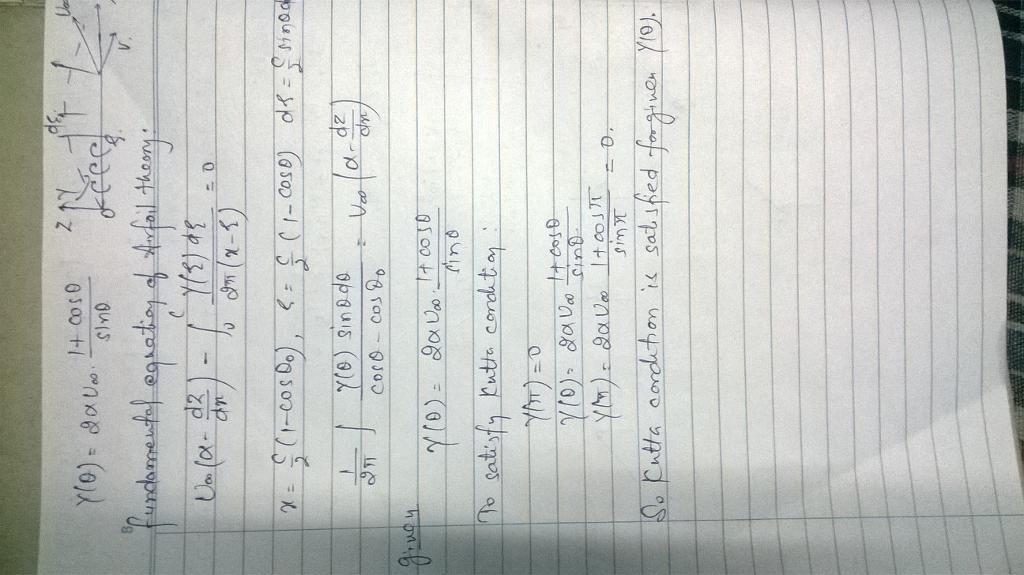 γ(θ) = 2αV∞ · (1 + cosθ)/sinθ
Z
dξ
V∞
V
0
ξ
Fundamental equation of Airfoil theory:
V∞(α - dZ/dx) - ∫₀ᶜ γ(ξ)dξ/2π(x-ξ) = 0
x = c/2 (1-cosθ₀), ξ = c/2 (1-cosθ) dξ = c/2 sinθd
1/2π ∫ γ(θ) sinθdθ/cosθ - cosθ₀ = V∞(α - dZ/dx)
given
γ(θ) = 2αV∞ · (1+cosθ)/sinθ
To satisfy Kutta condition:
γ(π) = 0
γ(θ) = 2αV∞ (1+cosθ)/sinθ
γ(π) = 2αV∞ (1+cosπ)/sinπ = 0.
So Kutta condition is satisfied for given γ(θ).